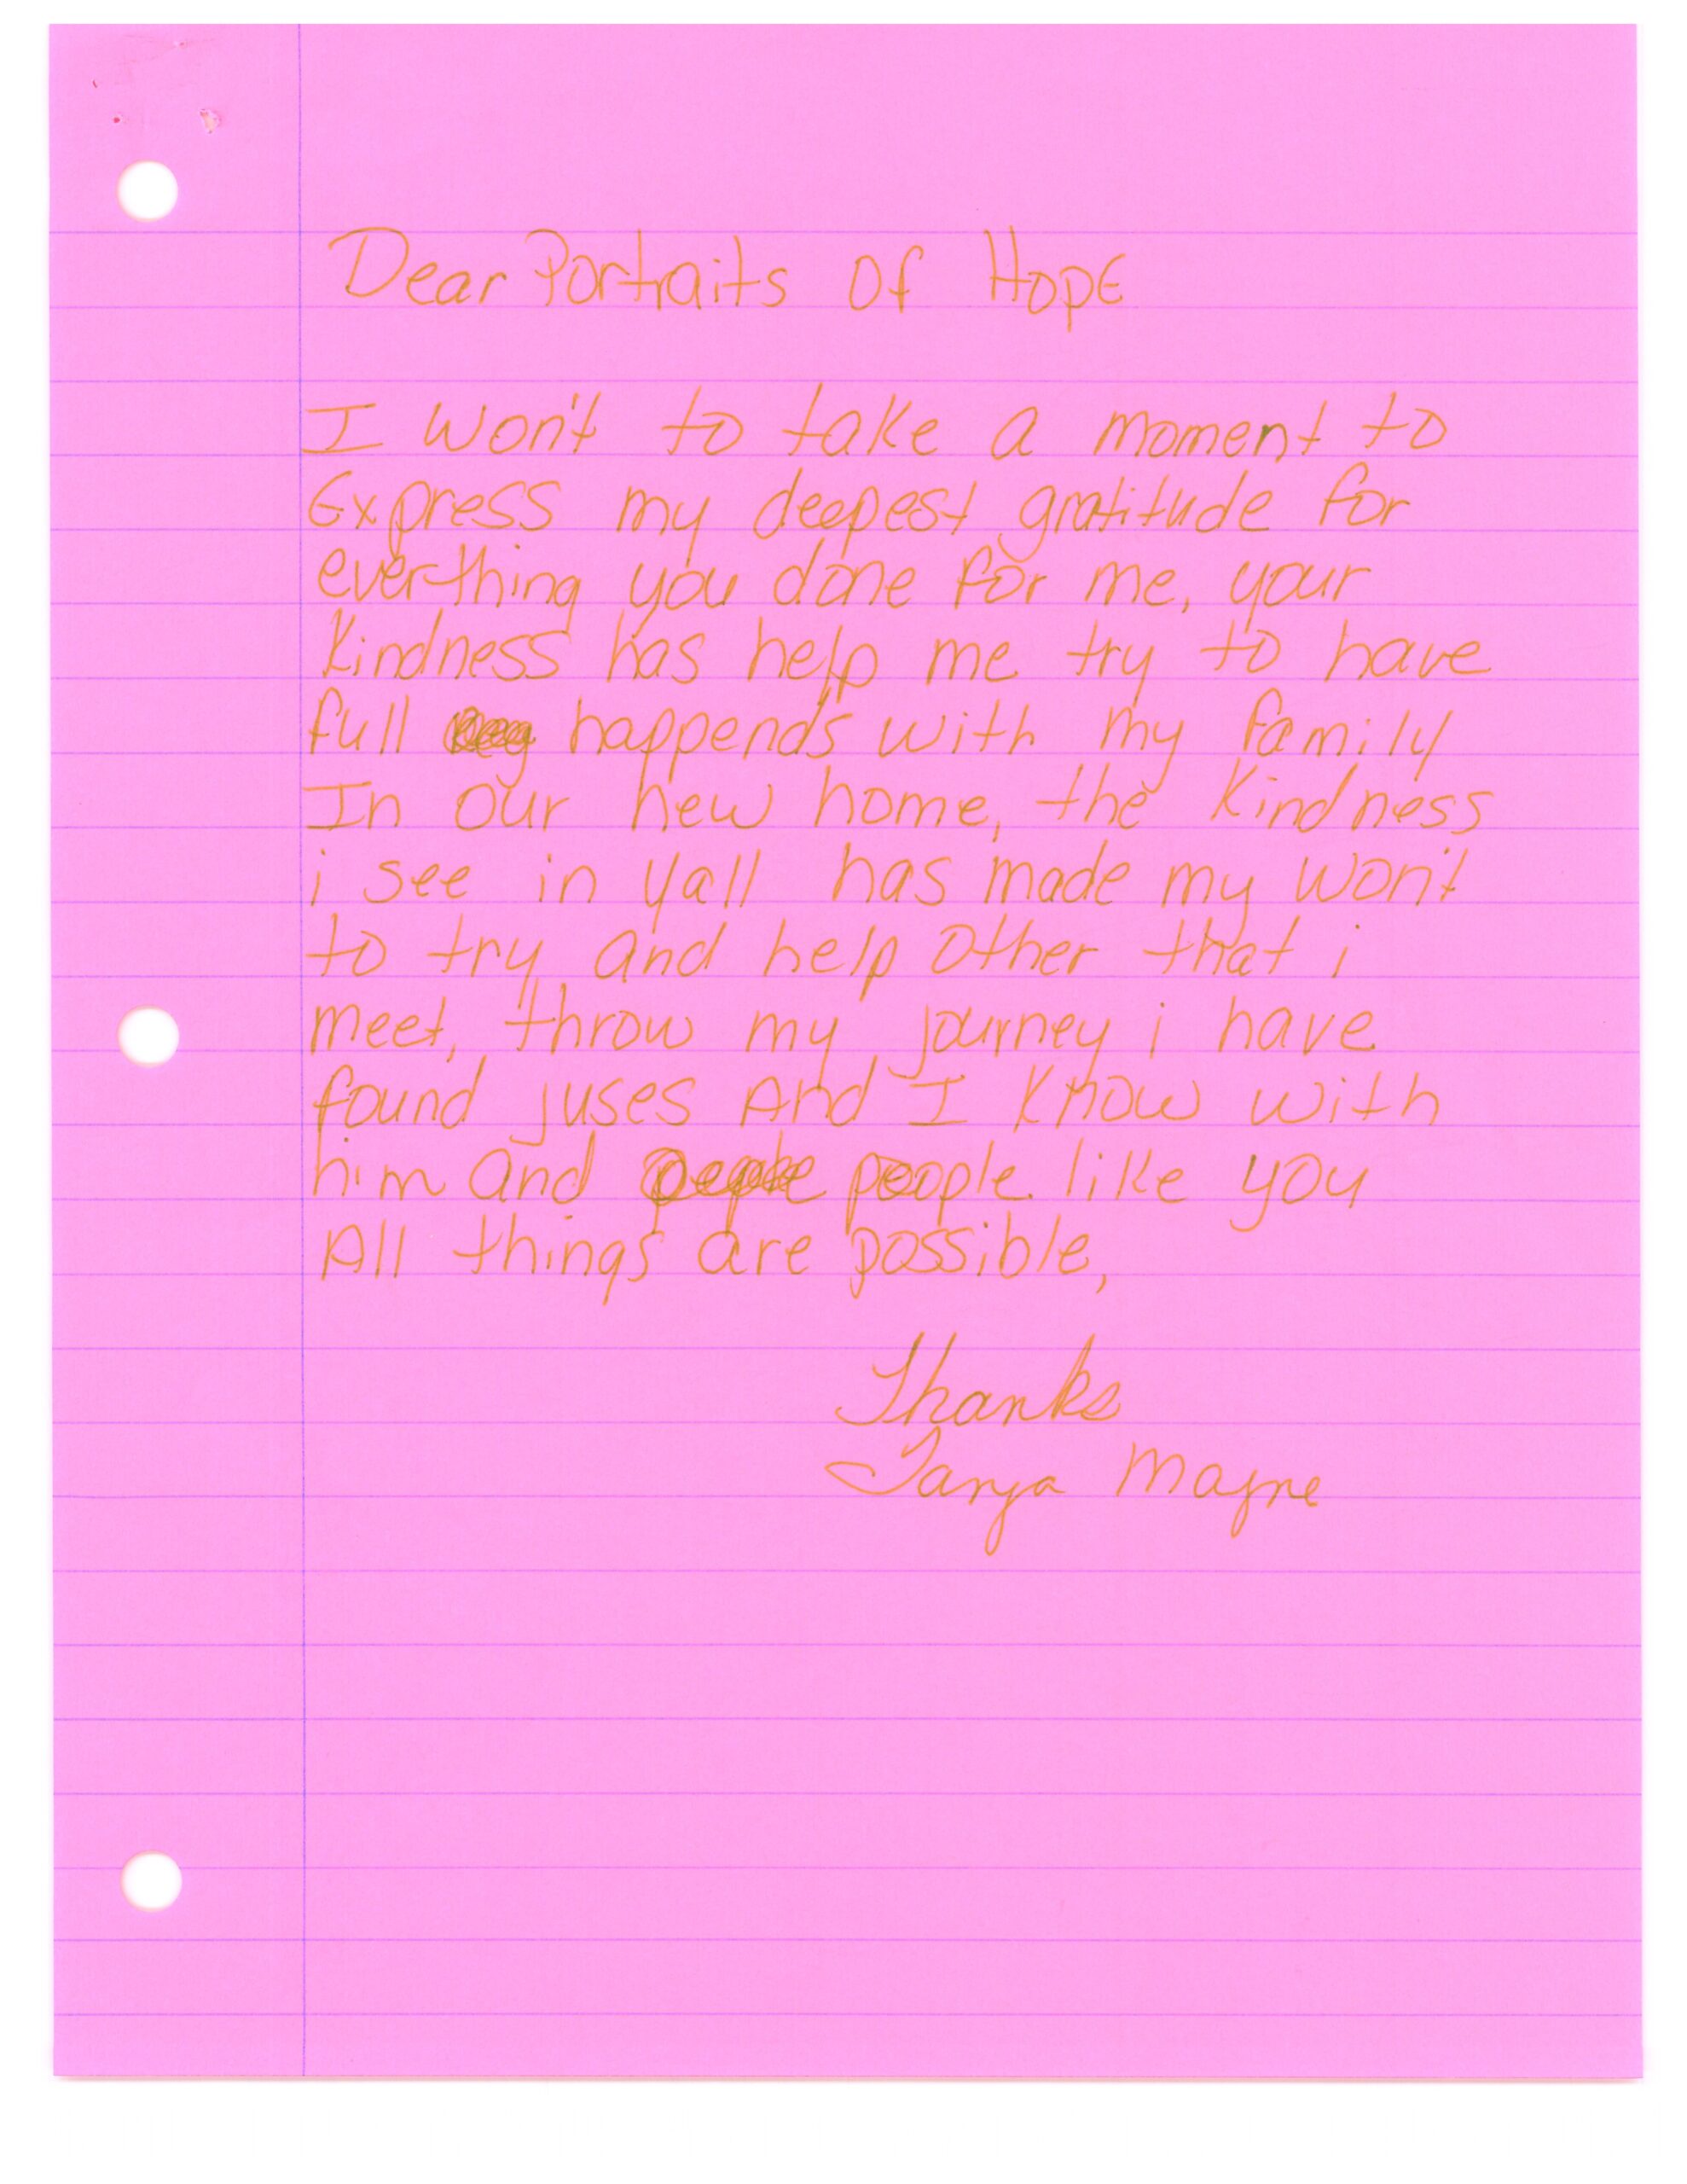 Dear Portraits Of Hope
I won't to take a moment to
Express my deepest gratitude for
everthing you done for me, your
Kindness has help me try to have
full happends with my family
In our new home, the Kindness
i see in yall has made my won't
to try and help Other that i
meet, throw my journey i have
found juses And I Know with
him and people like you
All things are possible,
Thanks
Tanya Mayne